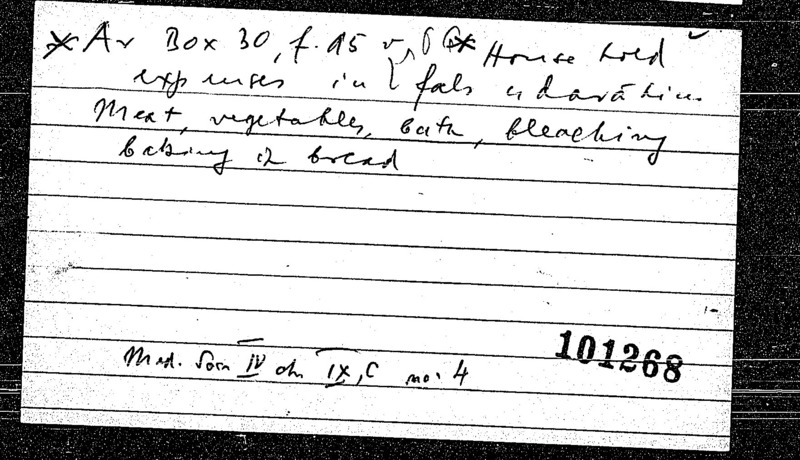 Ar Box 30, f. 95 v, House hold
expenses in fals
Meat, vegetables, bath, bleaching
baking of bread
Med. Soc. IV ch IX, C no. 4
101268